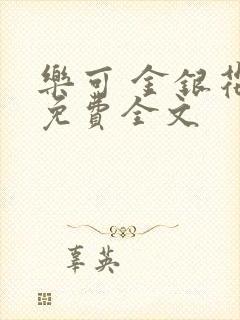 樂可 金銀花
免費全文
辜英